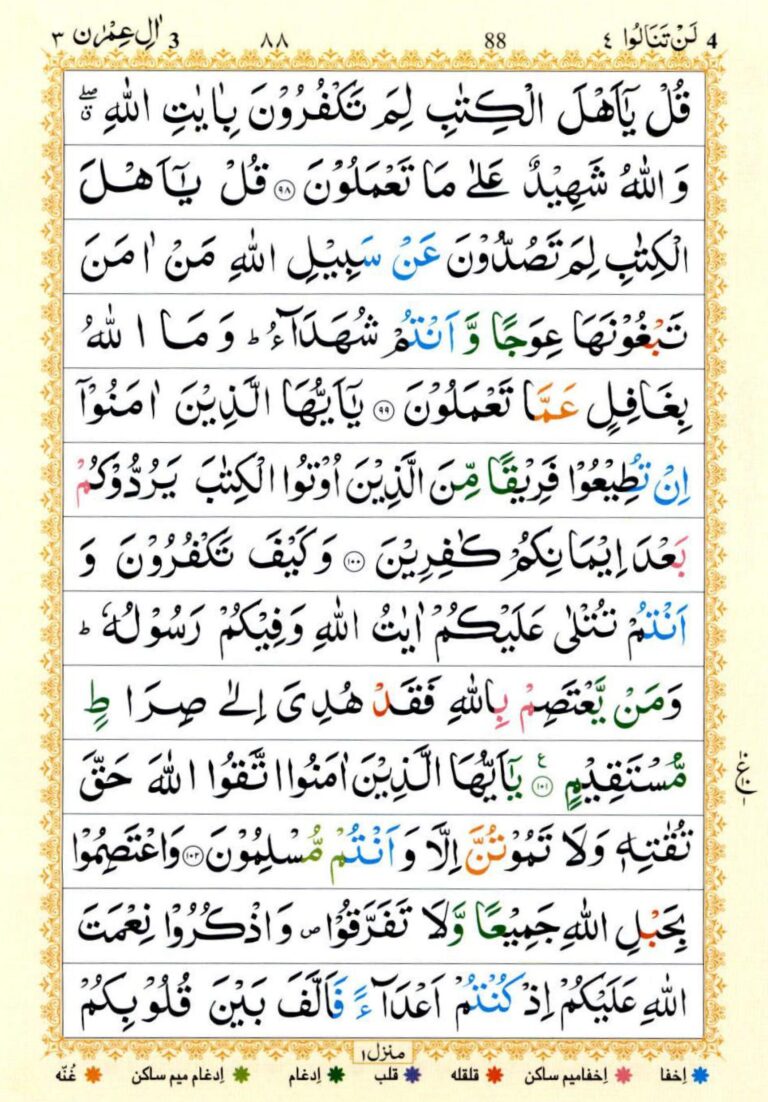 4 لَنْ تَنَالُوا ٤ 88 ٨٨ 3 اٰلِ عِمْرٰن ٣
قُلْ يٰۤاَهْلَ الْكِتٰبِ لِمَ تَكْفُرُوْنَ بِاٰيٰتِ اللّٰهِ ۖۗ
وَ اللّٰهُ شَهِيْدٌ عَلٰى مَا تَعْمَلُوْنَ ۝٩٨ قُلْ يٰۤاَهْلَ
الْكِتٰبِ لِمَ تَصُدُّوْنَ عَنْ سَبِيْلِ اللّٰهِ مَنْ اٰمَنَ
تَبْغُوْنَهَا عِوَجًا وَّ اَنْتُمْ شُهَدَآءُ ؕ وَ مَا اللّٰهُ
بِغَافِلٍ عَمَّا تَعْمَلُوْنَ ۝٩٩ يٰۤاَيُّهَا الَّذِيْنَ اٰمَنُوْۤا
اِنْ تُطِيْعُوْا فَرِيْقًا مِّنَ الَّذِيْنَ اُوْتُوا الْكِتٰبَ يَرُدُّوْكُمْ
بَعْدَ اِيْمَانِكُمْ كٰفِرِيْنَ ۝١٠٠ وَكَيْفَ تَكْفُرُوْنَ وَ
اَنْتُمْ تُتْلٰى عَلَيْكُمْ اٰيٰتُ اللّٰهِ وَفِيْكُمْ رَسُوْلُهٗ ؕ
وَمَنْ يَّعْتَصِمْ بِاللّٰهِ فَقَدْ هُدِىَ اِلٰى صِرَاطٍ
مُّسْتَقِيْمٍ ۝١٠١ ع يٰۤاَيُّهَا الَّذِيْنَ اٰمَنُوا اتَّقُوا اللّٰهَ حَقَّ
تُقٰتِهٖ وَلَا تَمُوْتُنَّ اِلَّا وَ اَنْتُمْ مُّسْلِمُوْنَ ۝١٠٢ وَاعْتَصِمُوْا
بِحَبْلِ اللّٰهِ جَمِيْعًا وَّلَا تَفَرَّقُوْا ص وَاذْكُرُوْا نِعْمَتَ
اللّٰهِ عَلَيْكُمْ اِذْ كُنْتُمْ اَعْدَآءً فَاَلَّفَ بَيْنَ قُلُوْبِكُمْ
منزل ١
اِخفا اِخفامیم ساکن قلقله قلب اِدغام اِدغام میم ساکن غُنّه